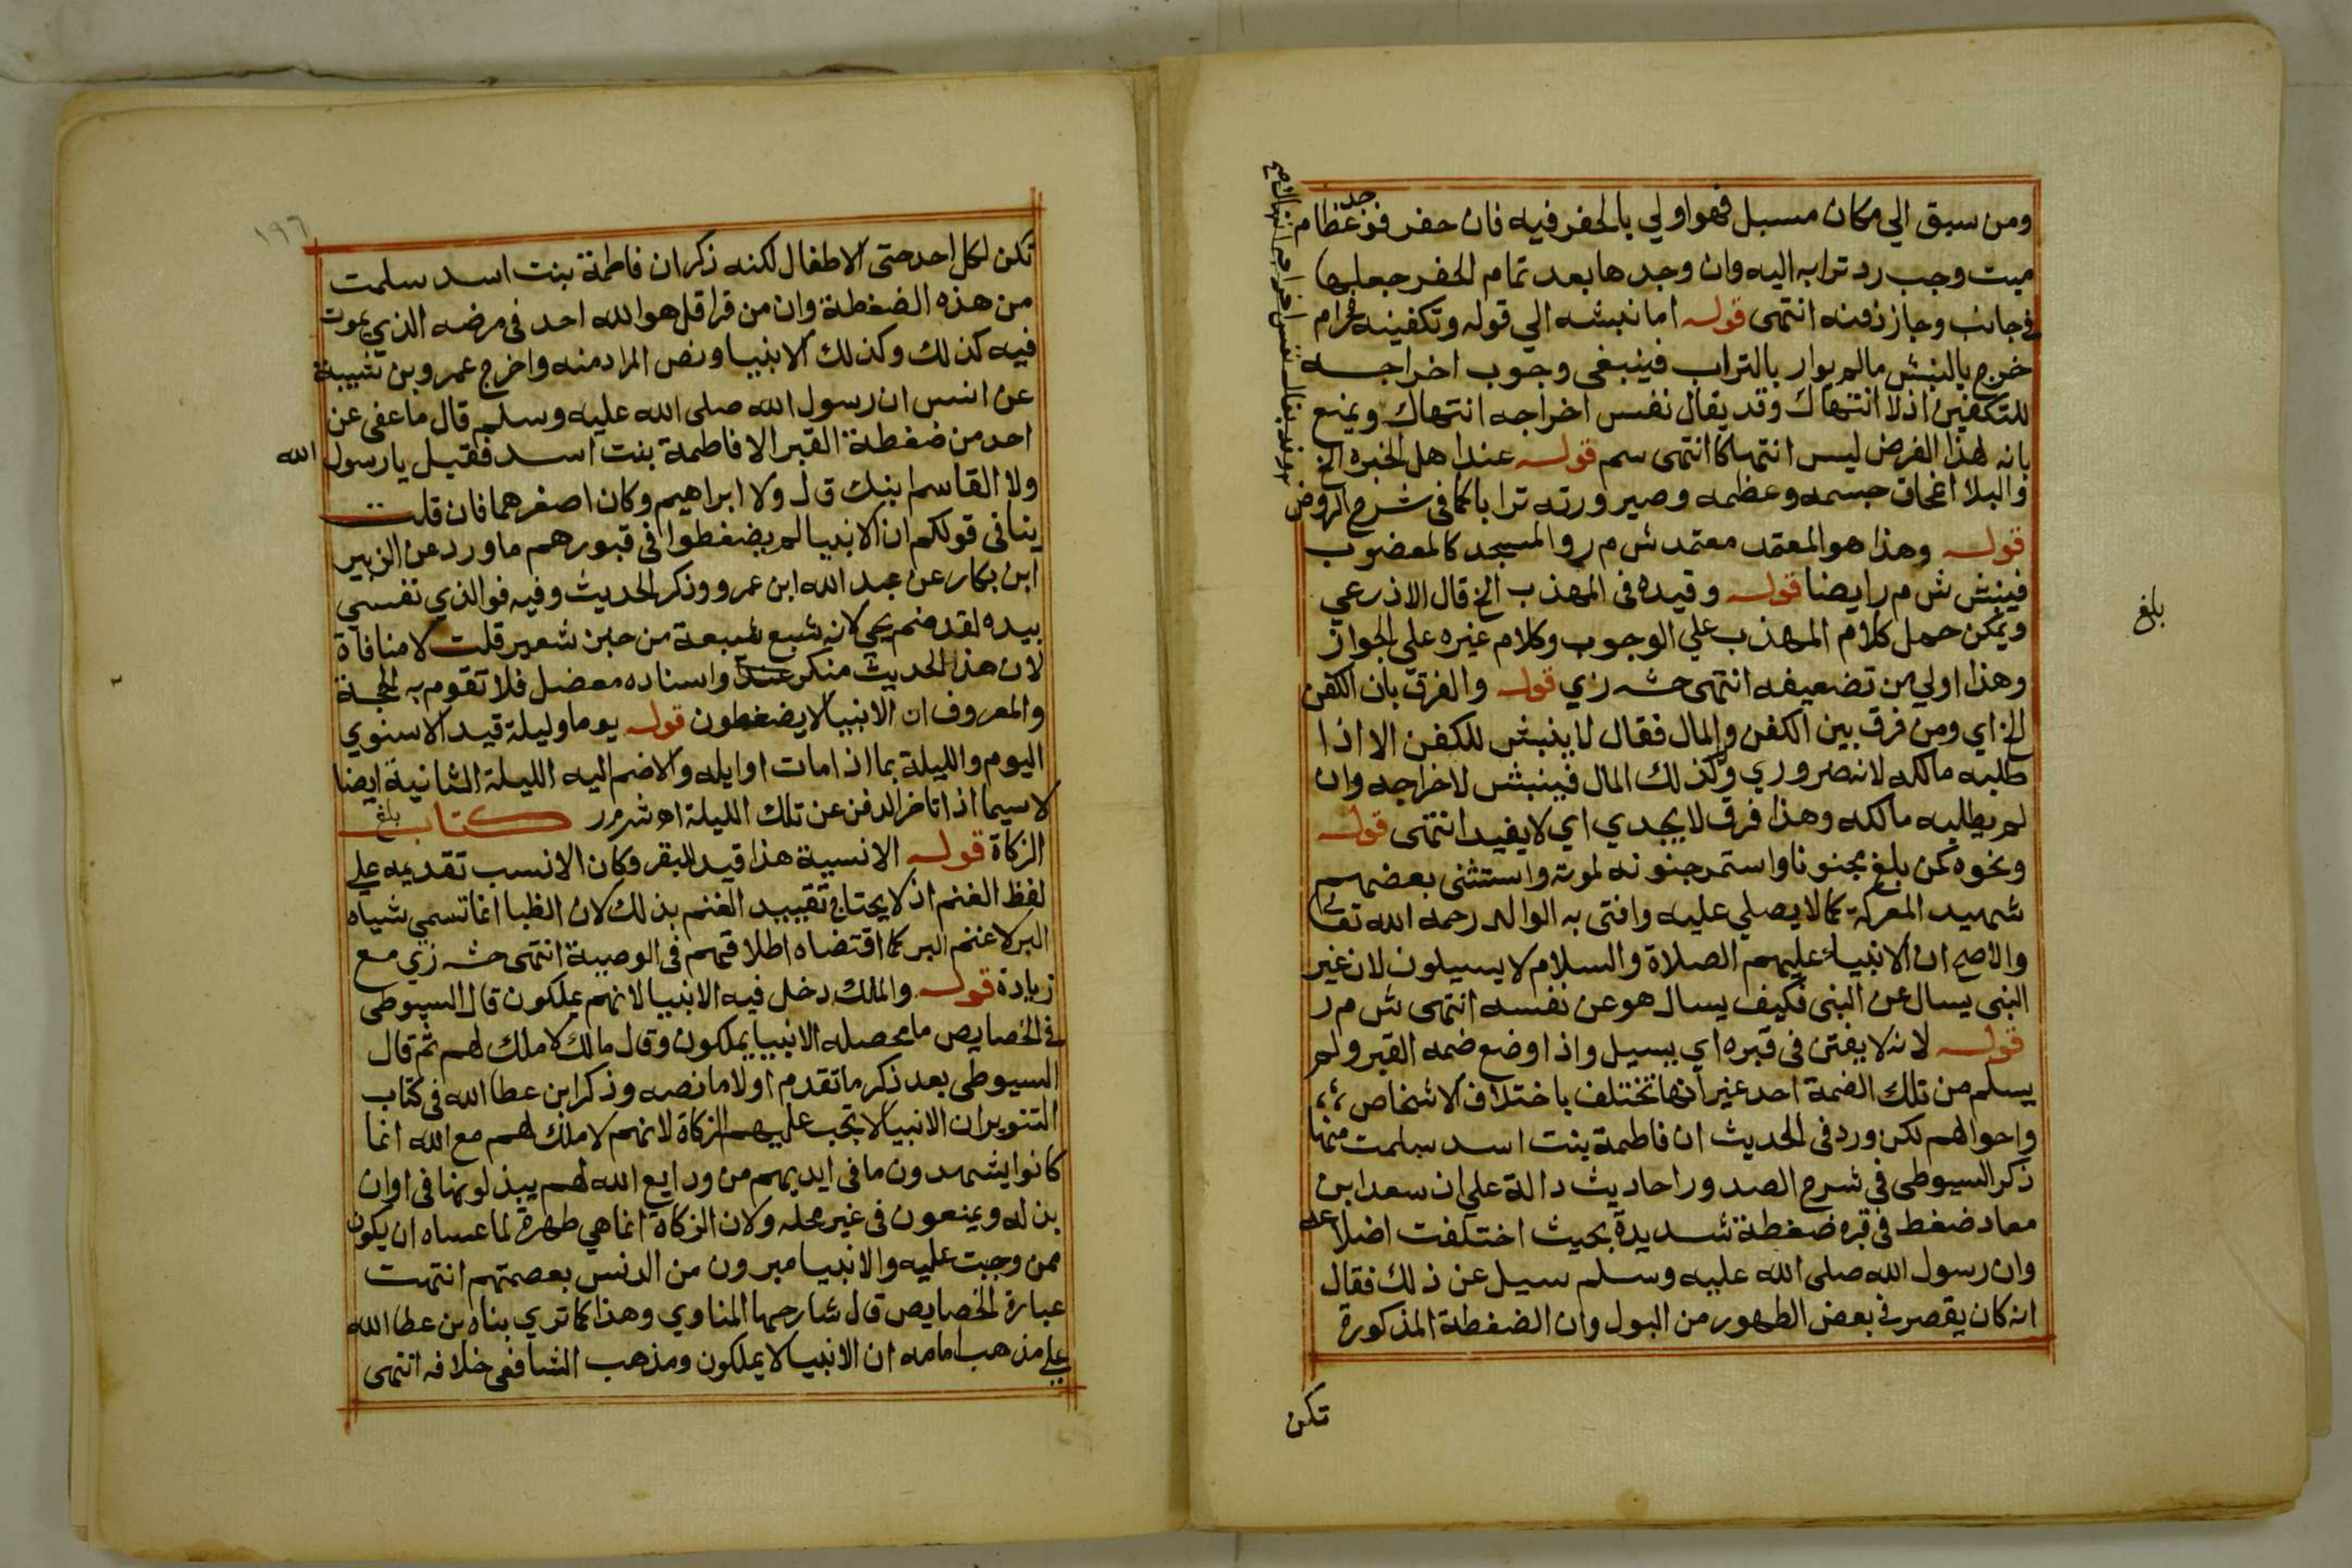 ومن سبق الي مكان مسبل فهو اولي بالحفر فيه فان حفر فوجد عظام
ميت وجب رد ترابه اليه وان وجدها بعد تمام الحفر جعلها
في جانب وجاز دفنه انتهى قوله اما نبشه الي قوله وتكفينه فحرام
خرج بالنبش مالم يوار بالتراب فينبغي وجوب اخراجه
للتكفين اذ لا انتهاك وقد يقال نفس اخراجه انتهاك ويمنع
بانه لهذا الغرض ليس انتهاكا انتهى سم قوله عند اهل الخبره الخ
والبلا انمحاق جسمه وعظمه وصيرورته ترابا كما في شرح الروض
قوله وهذا هو المعتمد معتمد ش م ر والمسجد كالمغصوب
فينبش ش م ر ايضا قوله وقيده في المهذب الخ قال الاذرعي
ويمكن حمل كلام المهذب علي الوجوب وكلام غيره علي الجواز
وهذا اولي من تضعيفه انتهى حشه زي قوله والفرق بان الكفن
الخ اي ومن فرق بين الكفن والمال فقال لا ينبش للكفن الا اذا
طلبه مالكه لانه ضروري وكذلك المال فينبش لاخراجه وان
لم يطلبه مالكه وهذا فرق لا يجدي اي لا يفيد انتهى قوله
ونحوه كمن بلغ مجنونا واستمر جنونه لموته واستثنى بعضهم
شهيد المعركة كما لا يصلي عليه وافتى به الوالد رحمه الله تعالى
والاصح ان الانبياء عليهم الصلاة والسلام لا يسيلون لان غير
النبي يسال عن النبي فكيف يسال هو عن نفسه انتهى ش م ر
قوله لانه لا يفتن في قبره اي يسيل واذا وضع ضمه القبر ولم
يسلم من تلك الضمة احد غير انها تختلف باختلاف الاشخاص
واحوالهم لكن ورد في الحديث ان فاطمة بنت اسد سلمت منها
ذكر السيوطي في شرح الصدور احاديث دالة علي ان سعد ابن
معاد ضغط في قبره ضغطة شديدة بحيث اختلفت اضلاعه
وان رسول الله صلى الله عليه وسلم سيل عن ذلك فقال
انه كان يقصر في بعض الطهور من البول وان الضغطة المذكورة
تكن
بلغ
١٩٦
تكن لكل احد حتى الاطفال لكنه ذكر ان فاطمة بنت اسد سلمت
من هذه الضغطة وان من قرا قل هو الله احد في مرضه الذي يموت
فيه كذلك وكذلك الانبيا ونص المراد منه واخرج عمرو بن شبيبة
عن انس ان رسول الله صلى الله عليه وسلم قال ما عفى عن
احد من ضغطة القبر الا فاطمة بنت اسد فقيل يا رسول الله
ولا القاسم ابنك قال ولا ابراهيم وكان اصغرهما فان قلت
ينافي قولكم ان الانبيا لم يضغطوا في قبورهم ما ورد عن الزبير
ابن بكار عن عبد الله ابن عمرو وذكر الحديث وفيه فوالذي نفسي
بيده لقد ضم يحيى لانه شبع شبعة من خبز شعير قلت لا منافاة
لان هذا الحديث منكر عند واسناده معضل فلا تقوم به الحجة
والمعروف ان الانبيا لا يضغطون قوله يوما وليلة قيد الاسنوي
اليوم والليلة بما اذا مات اوايله والا ضم اليه الليلة الثانية ايضا
لا سيما اذا تاخر الدفن عن تلك الليلة اه ش م ر كتاب بلغ
الزكاة قوله الانسية هذا قيد للبقر وكان الانسب تقديمه علي
لفظ الغنم اذ لا يحتاج تقييد الغنم بذلك لان الظبا انما تسمي شياه
البر لا غنم البر كما اقتضاه اطلاقهم في الوصية انتهى حشه زي مع
زيادة قوله والملك دخل فيه الانبيا لانهم يملكون قال السيوطي
في الخصايص ما محصله الانبيا يملكون وقال مالك لا ملك لهم ثم قال
السيوطي بعد ذكر ما تقدم اولا ما نصه وذكر ابن عطا الله في كتاب
التنوير ان الانبيا لا تجب عليهم الزكاة لانهم لا ملك لهم مع الله انما
كانوا يشهدون ما في ايديهم من ودايع الله لهم يبذلونها في اوان
بذله ويمنعون في غير محله ولان الزكاة انما هي طهرة لما عساه ان يكون
ممن وجبت عليه والانبيا مبرون من الدنس بعصمتهم انتهت
عبارة الخصايص قال شارحها المناوي وهذا كما تري بناه بن عطا الله
علي مذهب امامه ان الانبيا لا يملكون ومذهب الشافعي خلافه انتهى